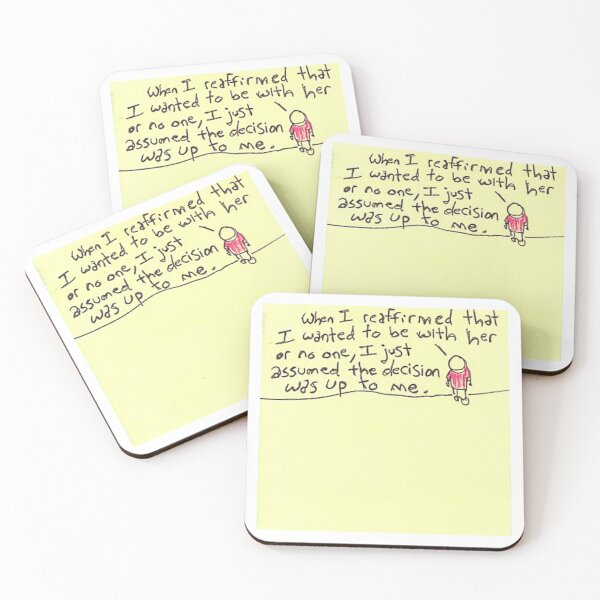 When I reaffirmed that
I wanted to be with her
or no one, I just
assumed the decision
was up to me.
When I reaffirmed that
I wanted to be with her
or no one, I just
assumed the decision
was up to me.
When I reaffirmed that
I wanted to be with her
or no one, I just
assumed the decision
was up to me.
When I reaffirmed that
I wanted to be with her
or no one, I just
assumed the decision
was up to me.